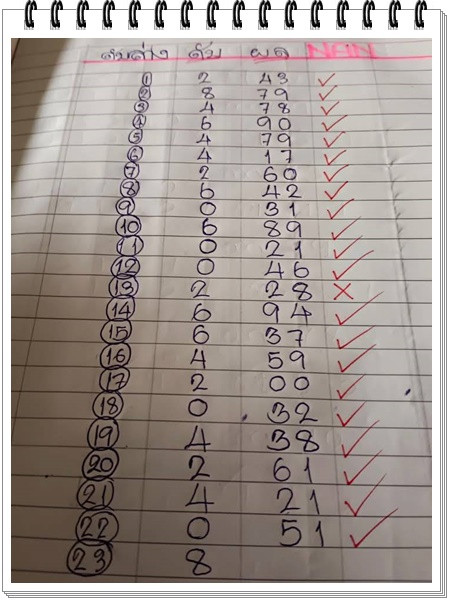 ดับล่าง ดับ ผล NAN
1 2 43 ✓
2 8 79 ✓
3 4 78 ✓
4 6 90 ✓
5 4 79 ✓
6 4 17 ✓
7 2 60 ✓
8 6 42 ✓
9 0 31 ✓
10 6 89 ✓
11 0 21 ✓
12 0 46 ✓
13 2 28 ✗
14 6 94 ✓
15 6 37 ✓
16 4 59 ✓
17 2 00 ✓
18 0 32 ✓
19 4 38 ✓
20 2 61 ✓
21 4 21 ✓
22 0 51 ✓
23 8